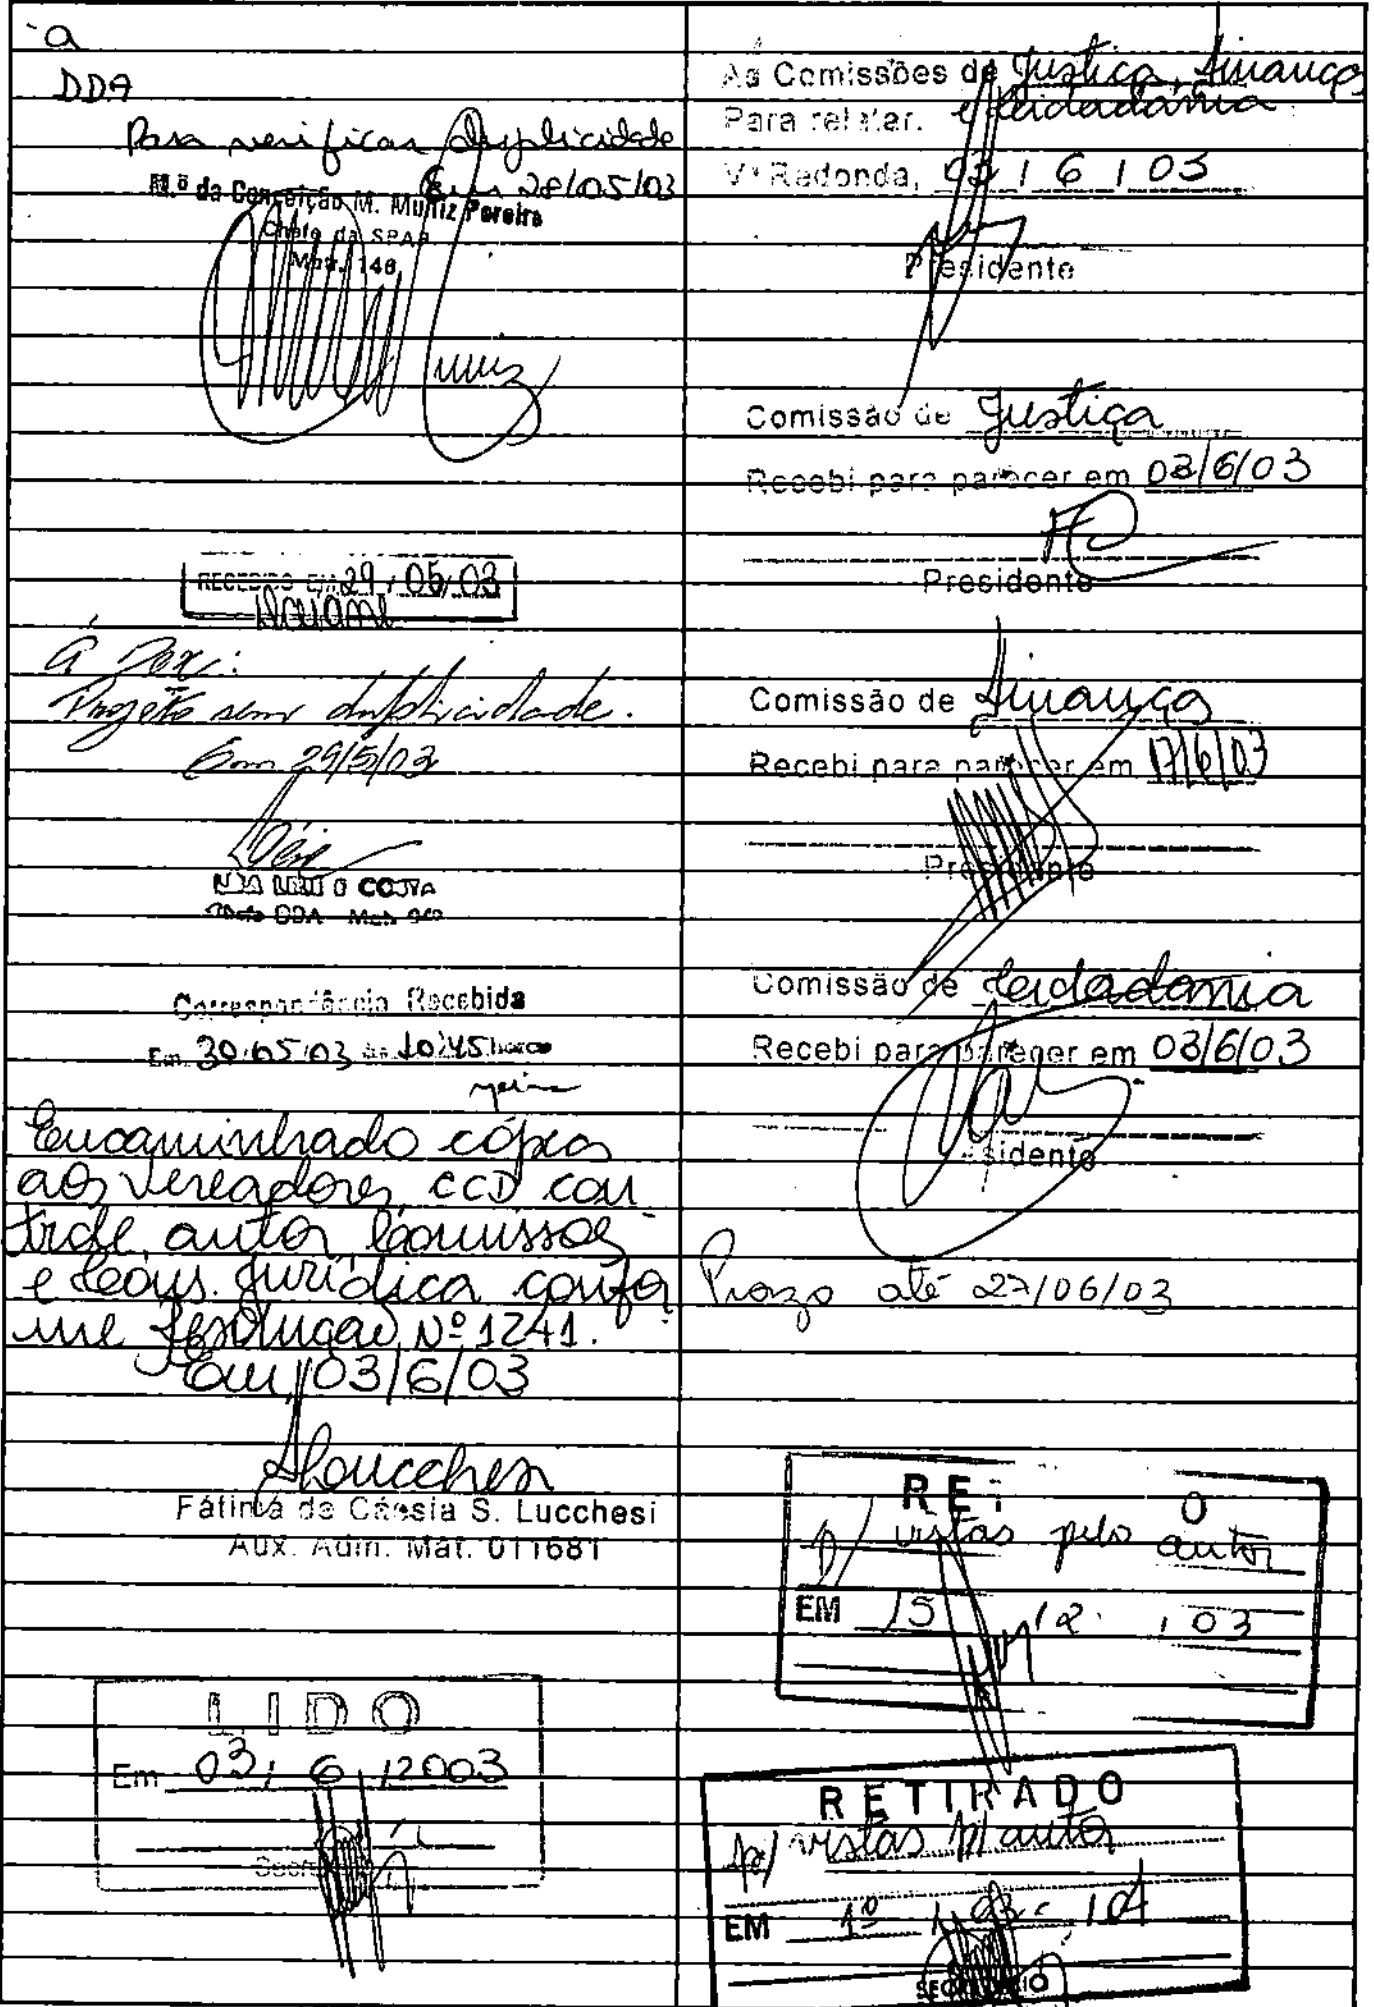 a
DDA
Para verificar duplicidade
Em 28/05/03
M.ª da Conceição M. Muniz Pereira
Chefe da SPAP
Matr. 146
RECEBIDO EM 29/05/03
Projeto sem duplicidade.
Em 29/5/03
COSTA
Chefe DDA Mat.
Correspondência Recebida
Em 30/05/03 às 10:45 horas
Encaminhado cópias
aos vereadores, CCD con
trole, autor, Comissões
e Cons. Jurídica confor
me Resolução Nº 1241.
Em, 03/6/03
Fátima de Cássia S. Lucchesi
Aux. Adm. Mat. 011681
LIDO
Em 03/6/2003
Secretário
As Comissões de Justiça, Finanças
Para relatar. e Cidadania
Vª Redonda, 03/6/03
Presidente
Comissão de Justiça
Recebi para parecer em 03/6/03
Presidente
Comissão de Finanças
Recebi para parecer em 17/6/03
Presidente
Comissão de Cidadania
Recebi para parecer em 03/6/03
sidente
Prazo até 27/06/03
RE O
p/ vistas pelo autor
EM 15/12/03
RETIRADO
p/ vistas p/ autor
EM 1º/03/04
SECRETÁRIO